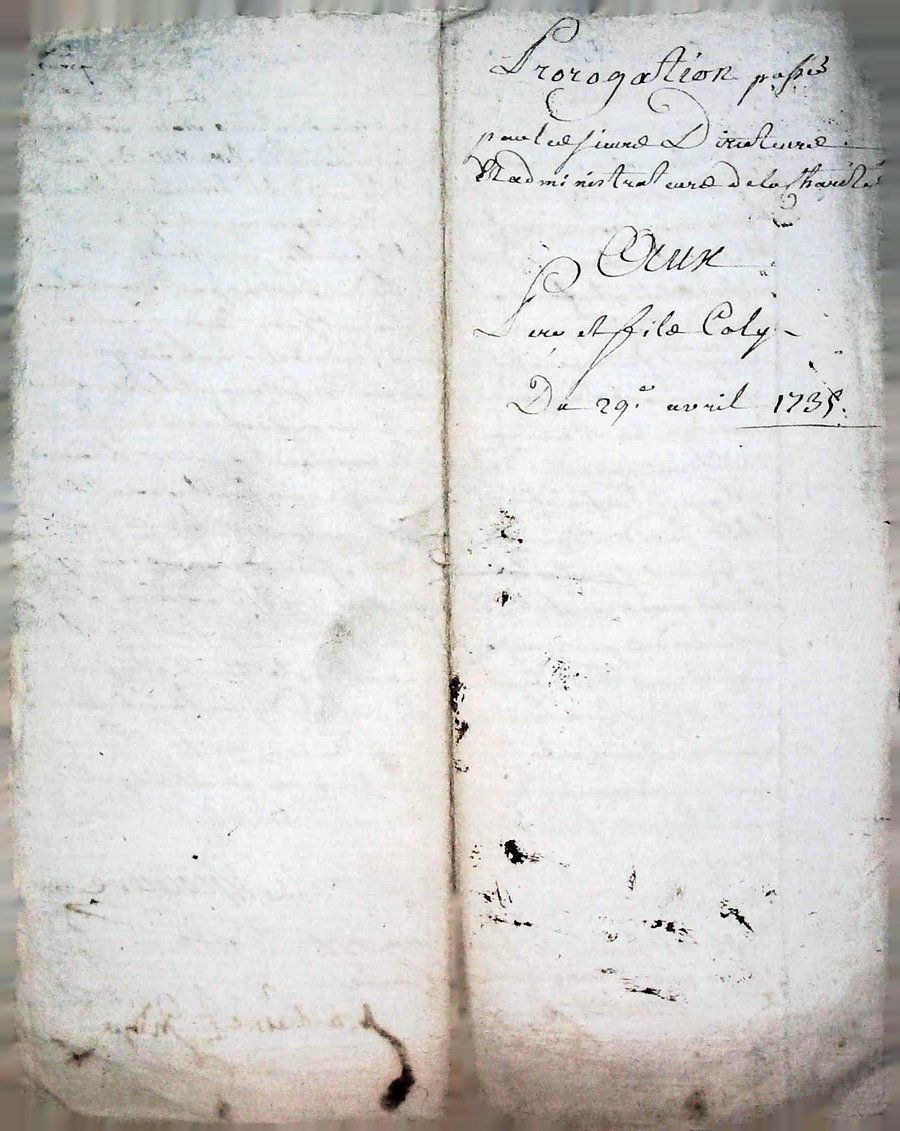 Prorogation passée
par les sieurs Directeurs
Et administrateurs de la Charité
Aux
Pere et fils Coly
Du 29.e avril 1735.